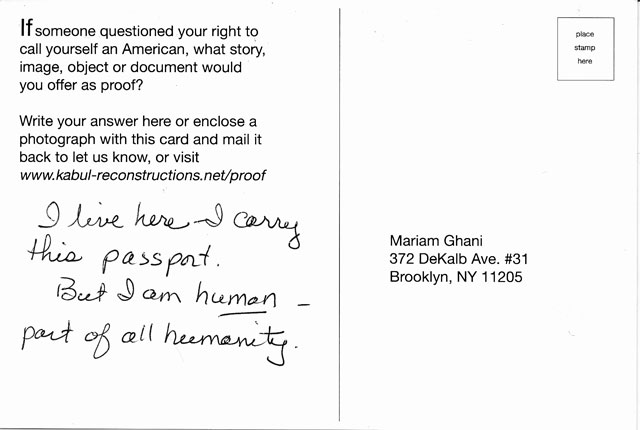 If someone questioned your right to
call yourself an American, what story,
image, object or document would
you offer as proof?
Write your answer here or enclose a
photograph with this card and mail it
back to let us know, or visit
www.kabul-reconstructions.net/proof
I live here - I carry
this passport.
But I am human -
part of all humanity.
place
stamp
here
Mariam Ghani
372 DeKalb Ave. #31
Brooklyn, NY 11205